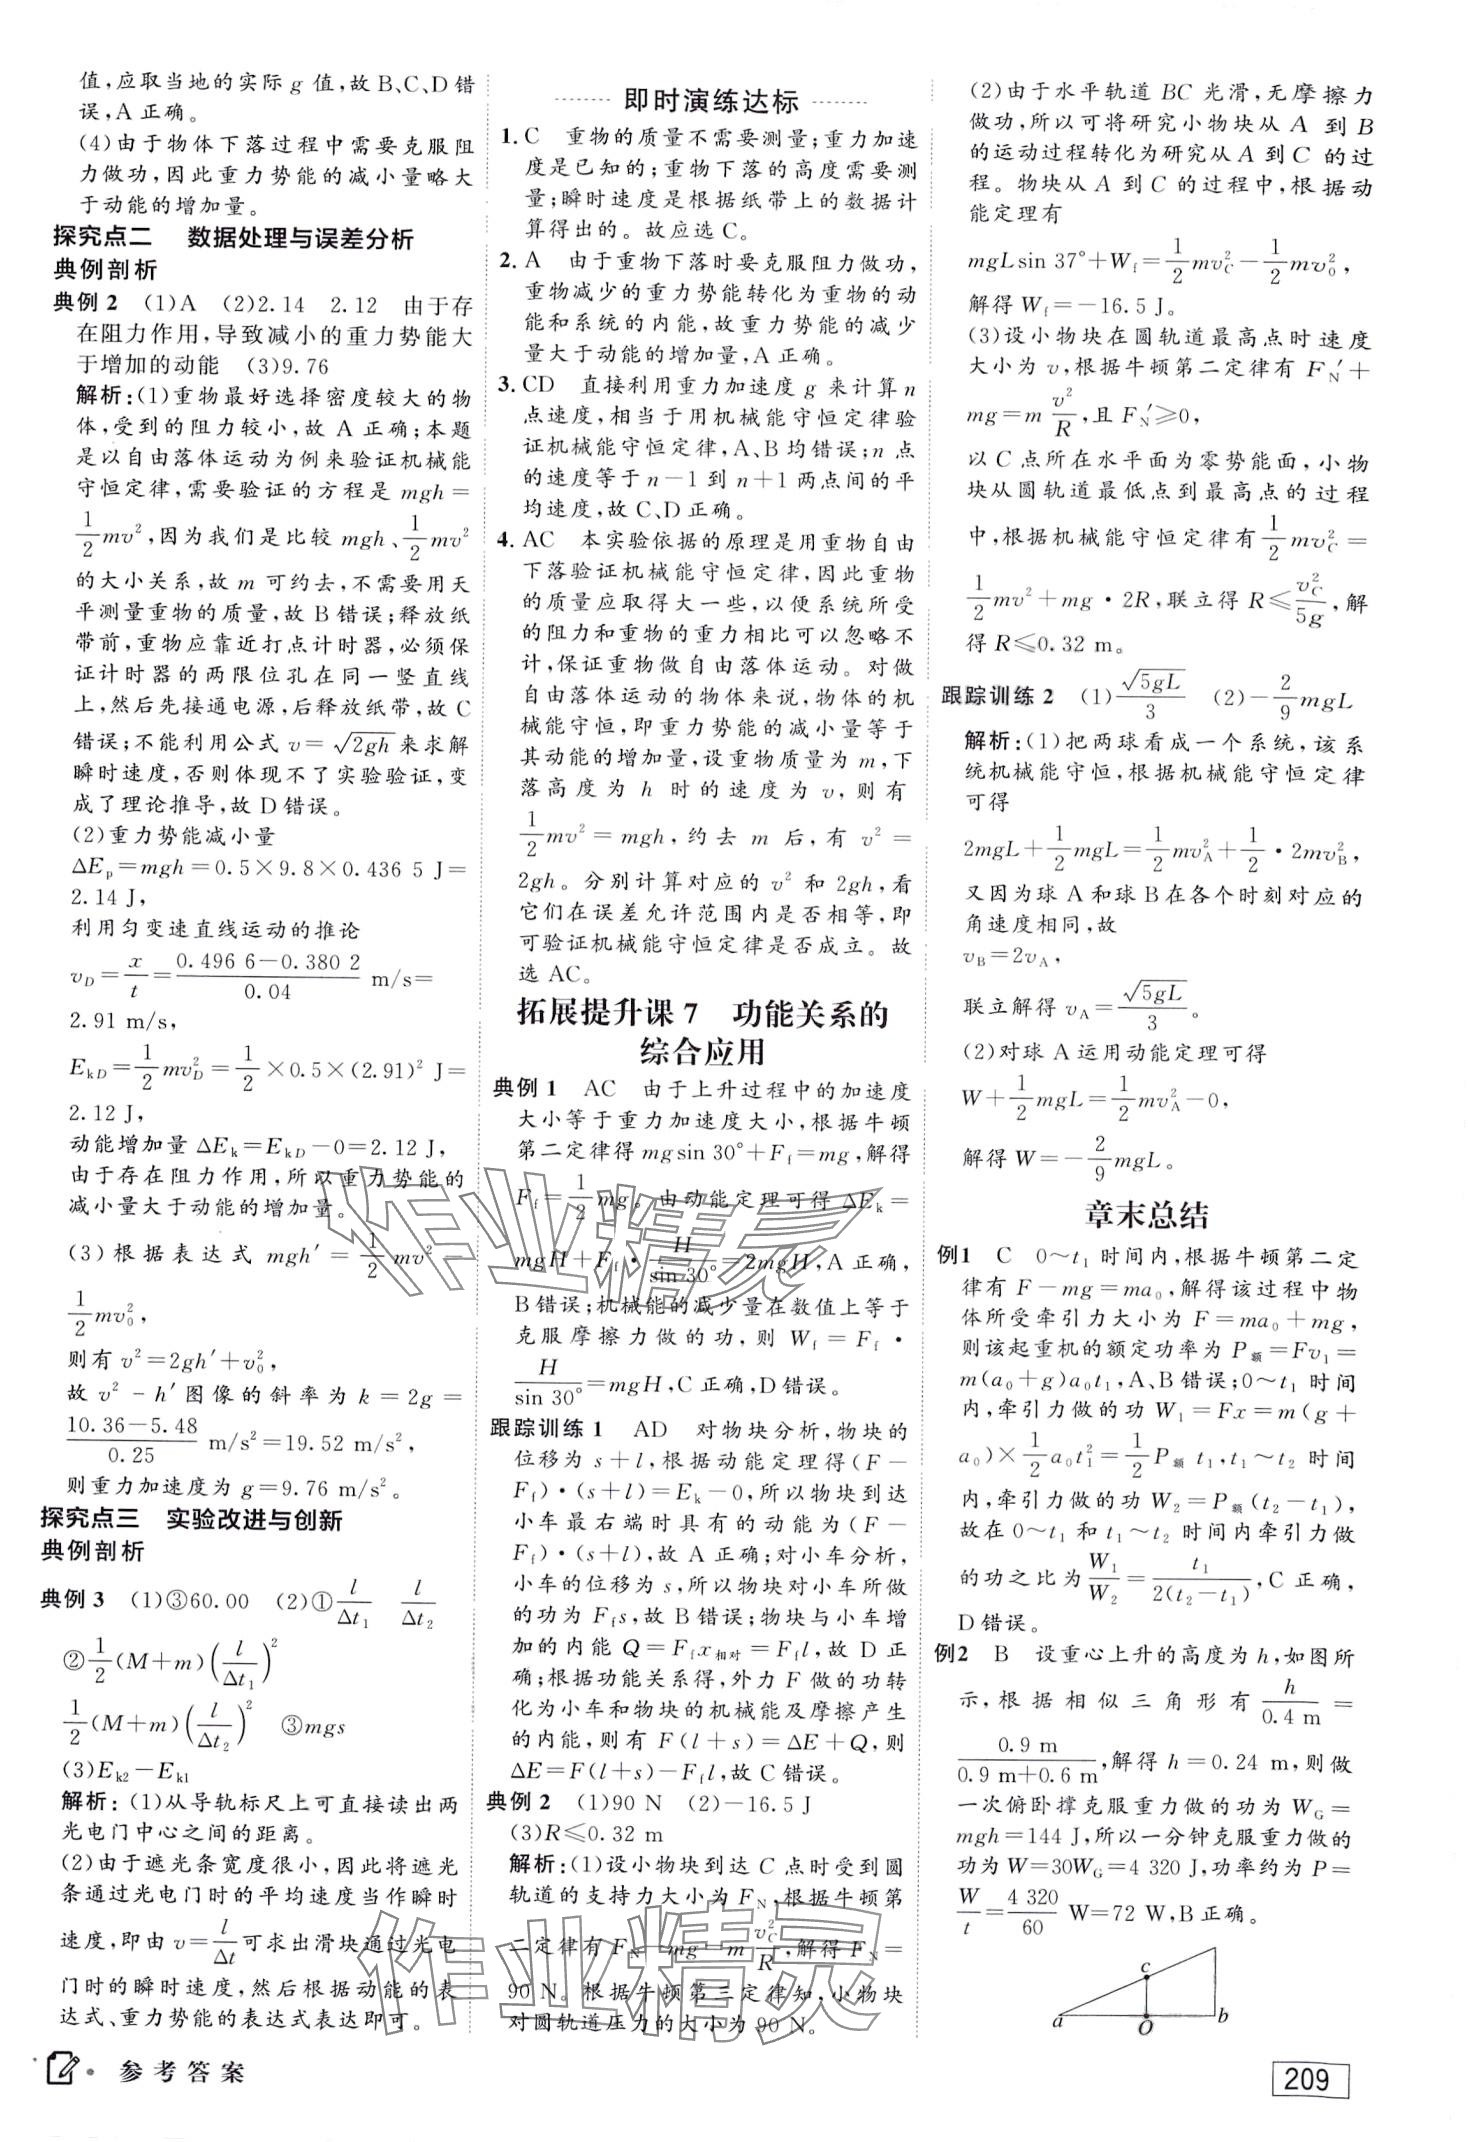 值,应取当地的实际 g 值,故 B、C、D 错
误,A 正确。
(4)由于物体下落过程中需要克服阻
力做功,因此重力势能的减小量略大
于动能的增加量。
探究点二　数据处理与误差分析
典例剖析
典例 2　(1)A　(2)2.14　2.12　由于存
在阻力作用,导致减小的重力势能大
于增加的动能　(3)9.76
解析:(1)重物最好选择密度较大的物
体,受到的阻力较小,故 A 正确;本题
是以自由落体运动为例来验证机械能
守恒定律,需要验证的方程是 mgh=
1/2 mv²,因为我们是比较 mgh、1/2 mv²
的大小关系,故 m 可约去,不需要用天
平测量重物的质量,故 B 错误;释放纸
带前,重物应靠近打点计时器,必须保
证计时器的两限位孔在同一竖直线
上,然后先接通电源,后释放纸带,故 C
错误;不能利用公式 v=√2gh 来求解
瞬时速度,否则体现不了实验验证,变
成了理论推导,故 D 错误。
(2)重力势能减小量
ΔEₚ=mgh=0.5×9.8×0.436 5 J=
2.14 J,
利用匀变速直线运动的推论
v_D=x/t=(0.496 6−0.380 2)/0.04 m/s=
2.91 m/s,
E_kD=1/2 mv_D²=1/2×0.5×(2.91)² J=
2.12 J,
动能增加量 ΔE_k=E_kD−0=2.12 J,
由于存在阻力作用,所以重力势能的
减小量大于动能的增加量。
(3)根据表达式 mgh′=1/2 mv²−
1/2 mv₀²,
则有 v²=2gh′+v₀²,
故 v²-h′图像的斜率为 k=2g=
(10.36−5.48)/0.25 m/s²=19.52 m/s²,
则重力加速度为 g=9.76 m/s²。
探究点三　实验改进与创新
典例剖析
典例 3　(1)③60.00　(2)①l/Δt₁　l/Δt₂
②1/2(M+m)(l/Δt₁)²
1/2(M+m)(l/Δt₂)²　③mgs
(3)E_k2−E_k1
解析:(1)从导轨标尺上可直接读出两
光电门中心之间的距离。
(2)由于遮光条宽度很小,因此将遮光
条通过光电门时的平均速度当作瞬时
速度,即由 v=l/Δt可求出滑块通过光电
门时的瞬时速度,然后根据动能的表
达式、重力势能的表达式表达即可。
即时演练达标
1. C　重物的质量不需要测量;重力加速
度是已知的;重物下落的高度需要测
量;瞬时速度是根据纸带上的数据计
算得出的。故应选 C。
2. A　由于重物下落时要克服阻力做功,
重物减少的重力势能转化为重物的动
能和系统的内能,故重力势能的减少
量大于动能的增加量,A 正确。
3. CD　直接利用重力加速度 g 来计算 n
点速度,相当于用机械能守恒定律验
证机械能守恒定律,A、B 均错误;n 点
的速度等于 n−1 到 n+1 两点间的平
均速度,故 C、D 正确。
4. AC　本实验依据的原理是用重物自由
下落验证机械能守恒定律,因此重物
的质量应取得大一些,以便系统所受
的阻力和重物的重力相比可以忽略不
计,保证重物做自由落体运动。对做
自由落体运动的物体来说,物体的机
械能守恒,即重力势能的减小量等于
其动能的增加量,设重物质量为 m,下
落高度为 h 时的速度为 v,则有
1/2 mv²=mgh,约去 m 后,有 v²=
2gh。分别计算对应的 v² 和 2gh,看
它们在误差允许范围内是否相等,即
可验证机械能守恒定律是否成立。故
选 AC。
拓展提升课 7　功能关系的
综合应用
典例 1　AC　由于上升过程中的加速度
大小等于重力加速度大小,根据牛顿
第二定律得 mgsin 30°+F_f=mg,解得
F_f=1/2 mg。由动能定理可得 ΔE_k=
mgH+F_f·H/sin 30°=2mgH,A 正确,
B 错误;机械能的减少量在数值上等于
克服摩擦力做的功,则 W_f=F_f·
H/sin 30°=mgH,C 正确,D 错误。
跟踪训练 1　AD　对物块分析,物块的
位移为 s+l,根据动能定理得(F−
F_f)·(s+l)=E_k−0,所以物块到达
小车最右端时具有的动能为(F−
F_f)·(s+l),故 A 正确;对小车分析,
小车的位移为 s,所以物块对小车所做
的功为 F_f s,故 B 错误;物块与小车增
加的内能 Q=F_f x相对=F_f l,故 D 正
确;根据功能关系得,外力 F 做的功转
化为小车和物块的机械能及摩擦产生
的内能,则有 F(l+s)=ΔE+Q,则
ΔE=F(l+s)−F_f l,故 C 错误。
典例 2　(1)90 N　(2)−16.5 J
(3)R≤0.32 m
解析:(1)设小物块到达 C 点时受到圆
轨道的支持力大小为 F_N,根据牛顿第
二定律有 F_N−mg=m v_C²/R,解得 F_N=
90 N。根据牛顿第三定律知,小物块
对圆轨道压力的大小为 90 N。
(2)由于水平轨道 BC 光滑,无摩擦力
做功,所以可将研究小物块从 A 到 B
的运动过程转化为研究从 A 到 C 的过
程。物块从 A 到 C 的过程中,根据动
能定理有
mgLsin 37°+W_f=1/2 mv_C²−1/2 mv₀²,
解得 W_f=−16.5 J。
(3)设小物块在圆轨道最高点时速度
大小为 v,根据牛顿第二定律有 F_N′+
mg=m v²/R,且 F_N′≥0,
以 C 点所在水平面为零势能面,小物
块从圆轨道最低点到最高点的过程
中,根据机械能守恒定律有1/2 mv_C²=
1/2 mv²+mg·2R,联立得 R≤v_C²/5g,解
得 R≤0.32 m。
跟踪训练 2　(1)√5gL/3　(2)−2/9 mgL
解析:(1)把两球看成一个系统,该系
统机械能守恒,根据机械能守恒定律
可得
2mgL+1/2 mgL=1/2 mv_A²+1/2·2mv_B²,
又因为球 A 和球 B 在各个时刻对应的
角速度相同,故
v_B=2v_A,
联立解得 v_A=√5gL/3。
(2)对球 A 运用动能定理可得
W+1/2 mgL=1/2 mv_A²−0,
解得 W=−2/9 mgL。
章末总结
例1　C　0～t₁ 时间内,根据牛顿第二定
律有 F−mg=ma₀,解得该过程中物
体所受牵引力大小为 F=ma₀+mg,
则该起重机的额定功率为 P额=Fv₁=
m(a₀+g)a₀t₁,A、B 错误;0～t₁ 时间
内,牵引力做的功 W₁=Fx=m(g+
a₀)×1/2 a₀t₁²=1/2 P额 t₁,t₁～t₂ 时间
内,牵引力做的功 W₂=P额(t₂−t₁),
故在 0～t₁ 和 t₁～t₂ 时间内牵引力做
的功之比为 W₁/W₂=t₁/2(t₂−t₁),C 正确,
D 错误。
例2　B　设重心上升的高度为 h,如图所
示,根据相似三角形有 h/0.4 m=
0.9 m/(0.9 m+0.6 m),解得 h=0.24 m,则做
一次俯卧撑克服重力做的功为 W_G=
mgh=144 J,所以一分钟克服重力做的
功为 W=30W_G=4 320 J,功率约为 P=
W/t=4 320/60 W=72 W,B 正确。
c
a　O　b
参考答案
209
作业精灵
作业精灵